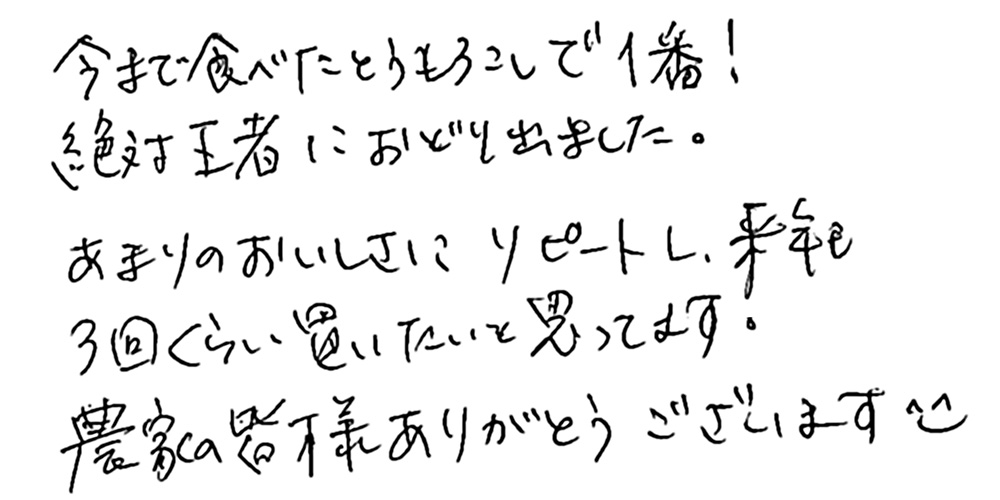 今まで食べたとうもろこしで1番!
絶対王者におどり出ました。
あまりのおいしさに リピートし、来年も
3回くらい買いたいと思ってます。
農家の皆様ありがとうございます^^